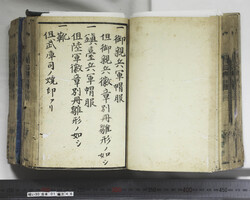 一御親兵軍帽服
但御親兵徽章別冊雛形ノ如シ
一鎮臺兵軍帽服
但陸軍徽章別冊雛形ノ如シ
一靴
但武庫司ノ焼印アリ